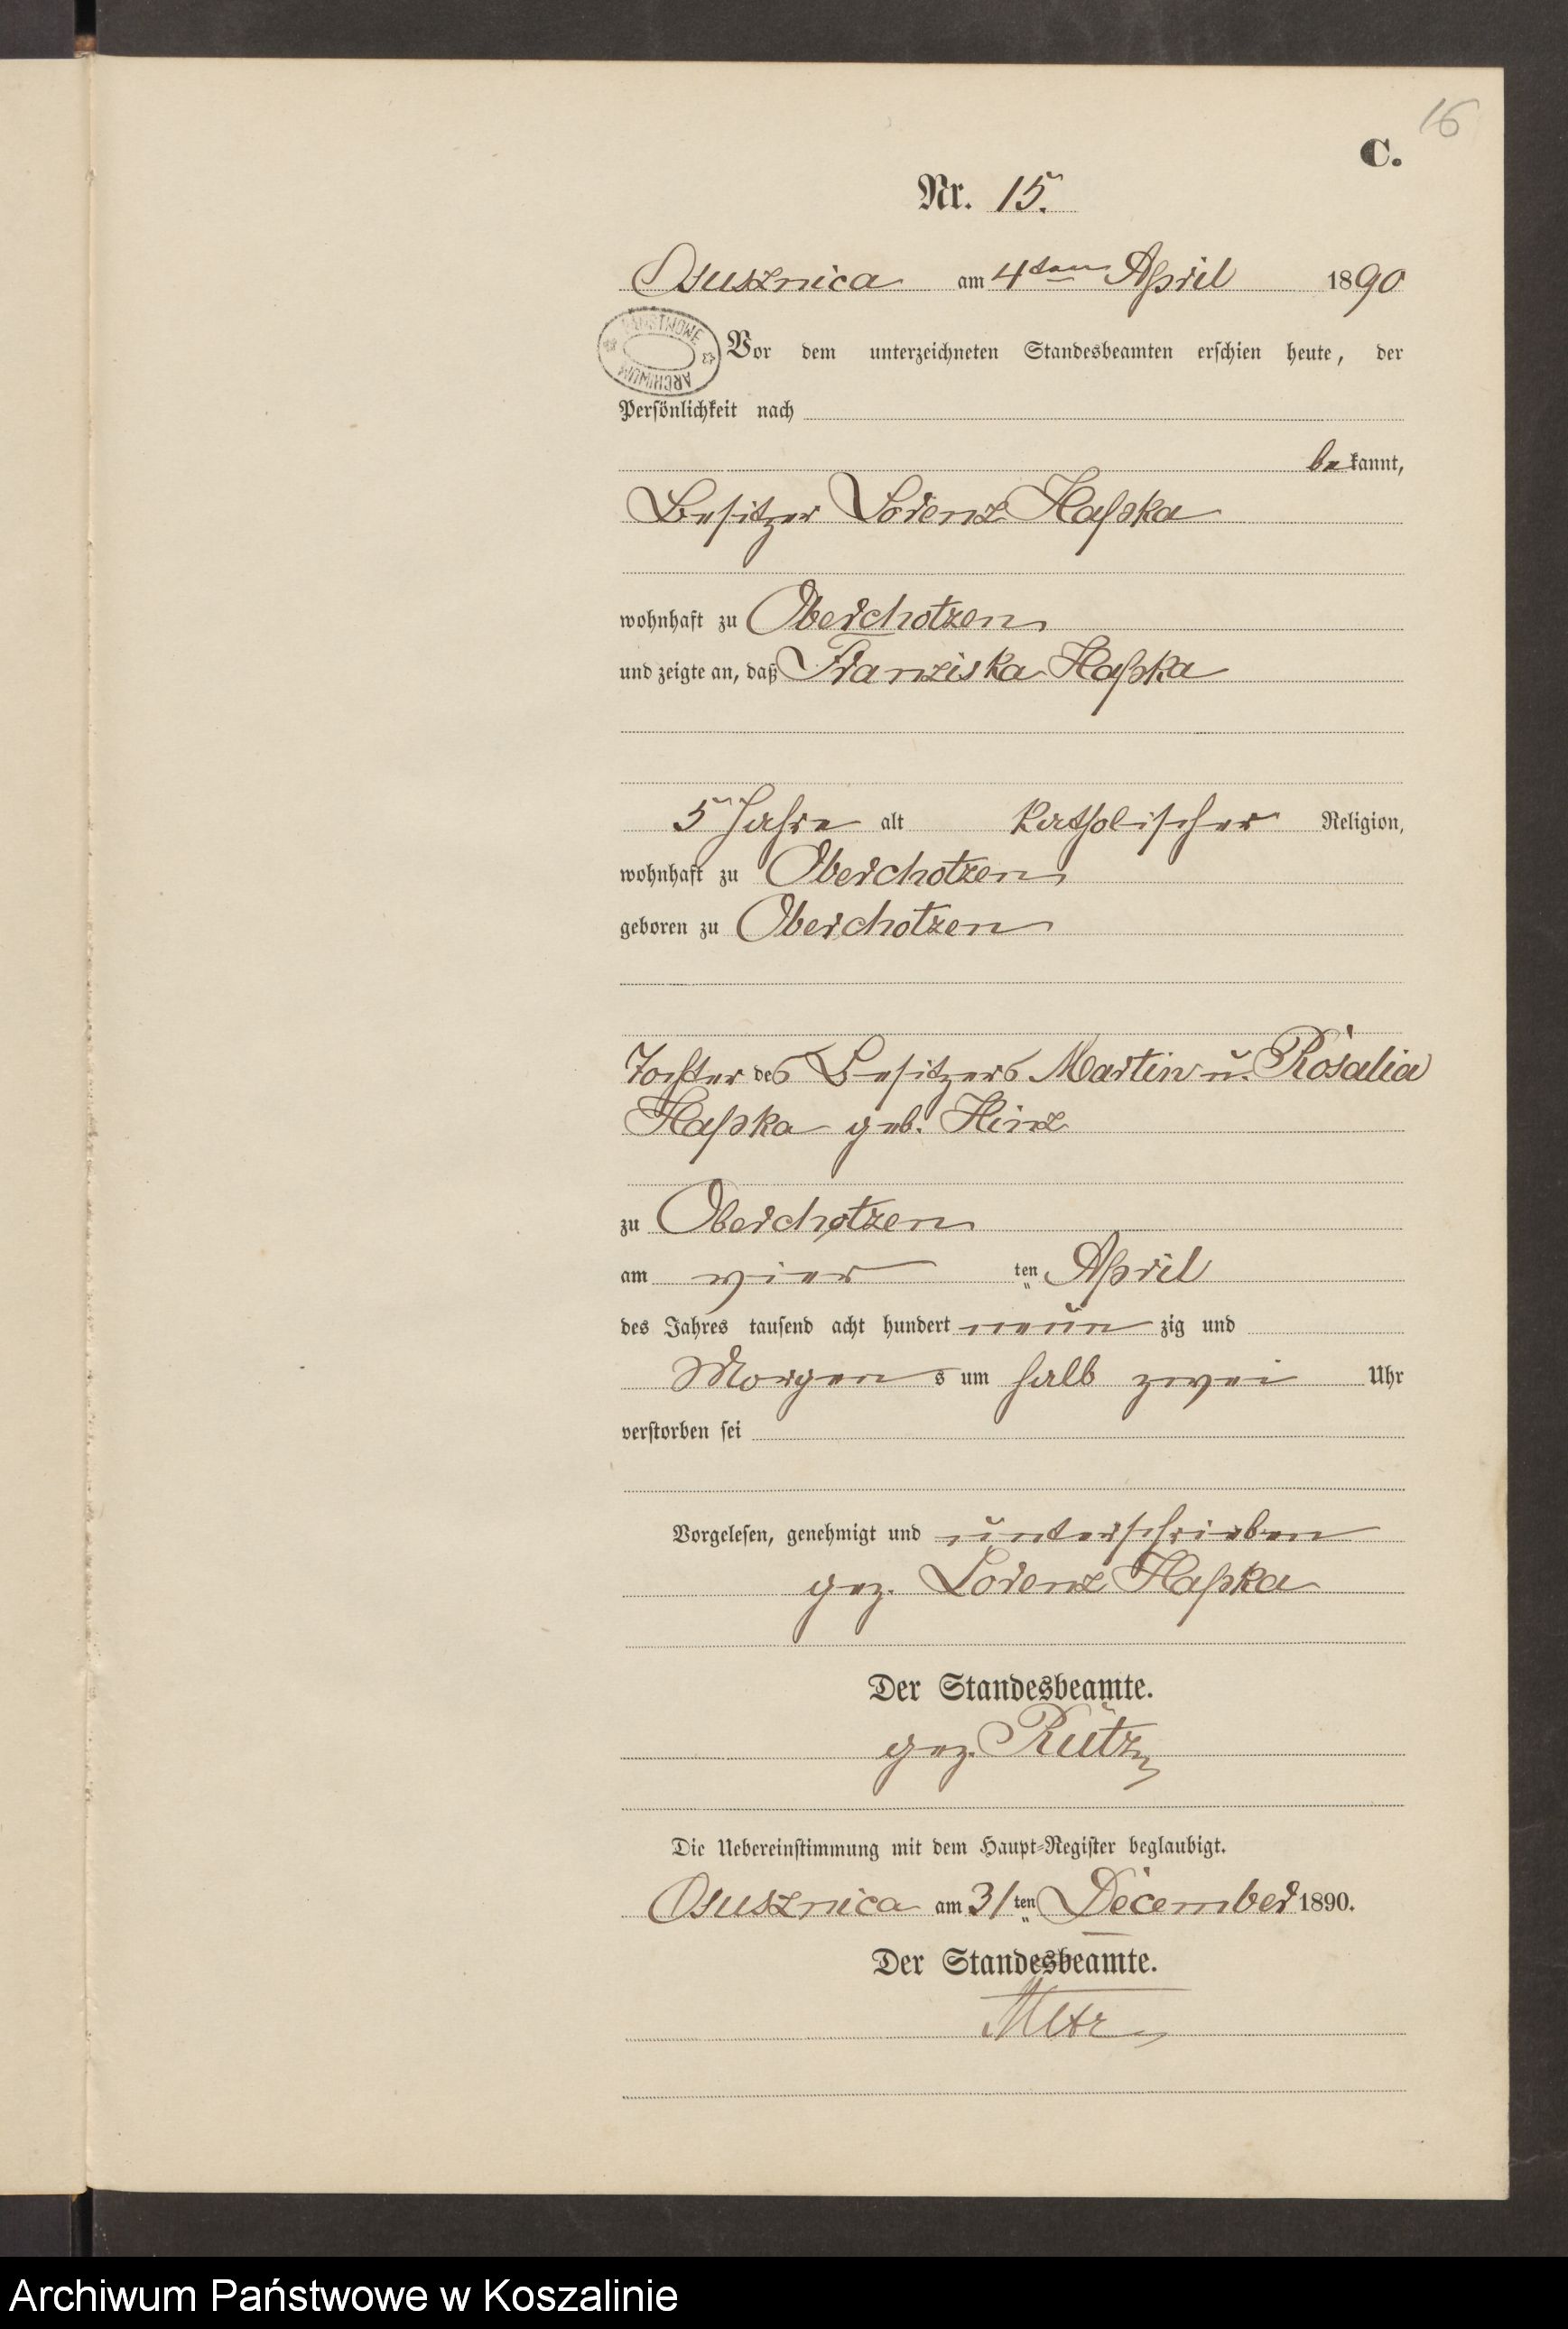 16
C.
Nr. 15.
Osusznica am 4ten April 1890
PAŃSTWOWE
ARCHIWUM
Vor dem unterzeichneten Standesbeamten erschien heute, der
Persönlichkeit nach
bekannt,
Besitzer Lorenz Hapka
wohnhaft zu Oberchotzen
und zeigte an, daß Franziska Hapka
5 Jahre alt katholischer Religion,
wohnhaft zu Oberchotzen
geboren zu Oberchotzen
Tochter des Besitzers Martin u. Rosalia
Hapka geb. Hinz
zu Oberchotzen
am vier ten April
des Jahres tausend acht hundert neun zig und
Morgens um halb zwei Uhr
verstorben sei
Vorgelesen, genehmigt und unterschrieben
gez. Lorenz Hapka
Der Standesbeamte.
gez. Rütz
Die Uebereinstimmung mit dem Haupt-Register beglaubigt.
Osusznica am 31ten December 1890.
Der Standesbeamte.
Archiwum Państwowe w Koszalinie